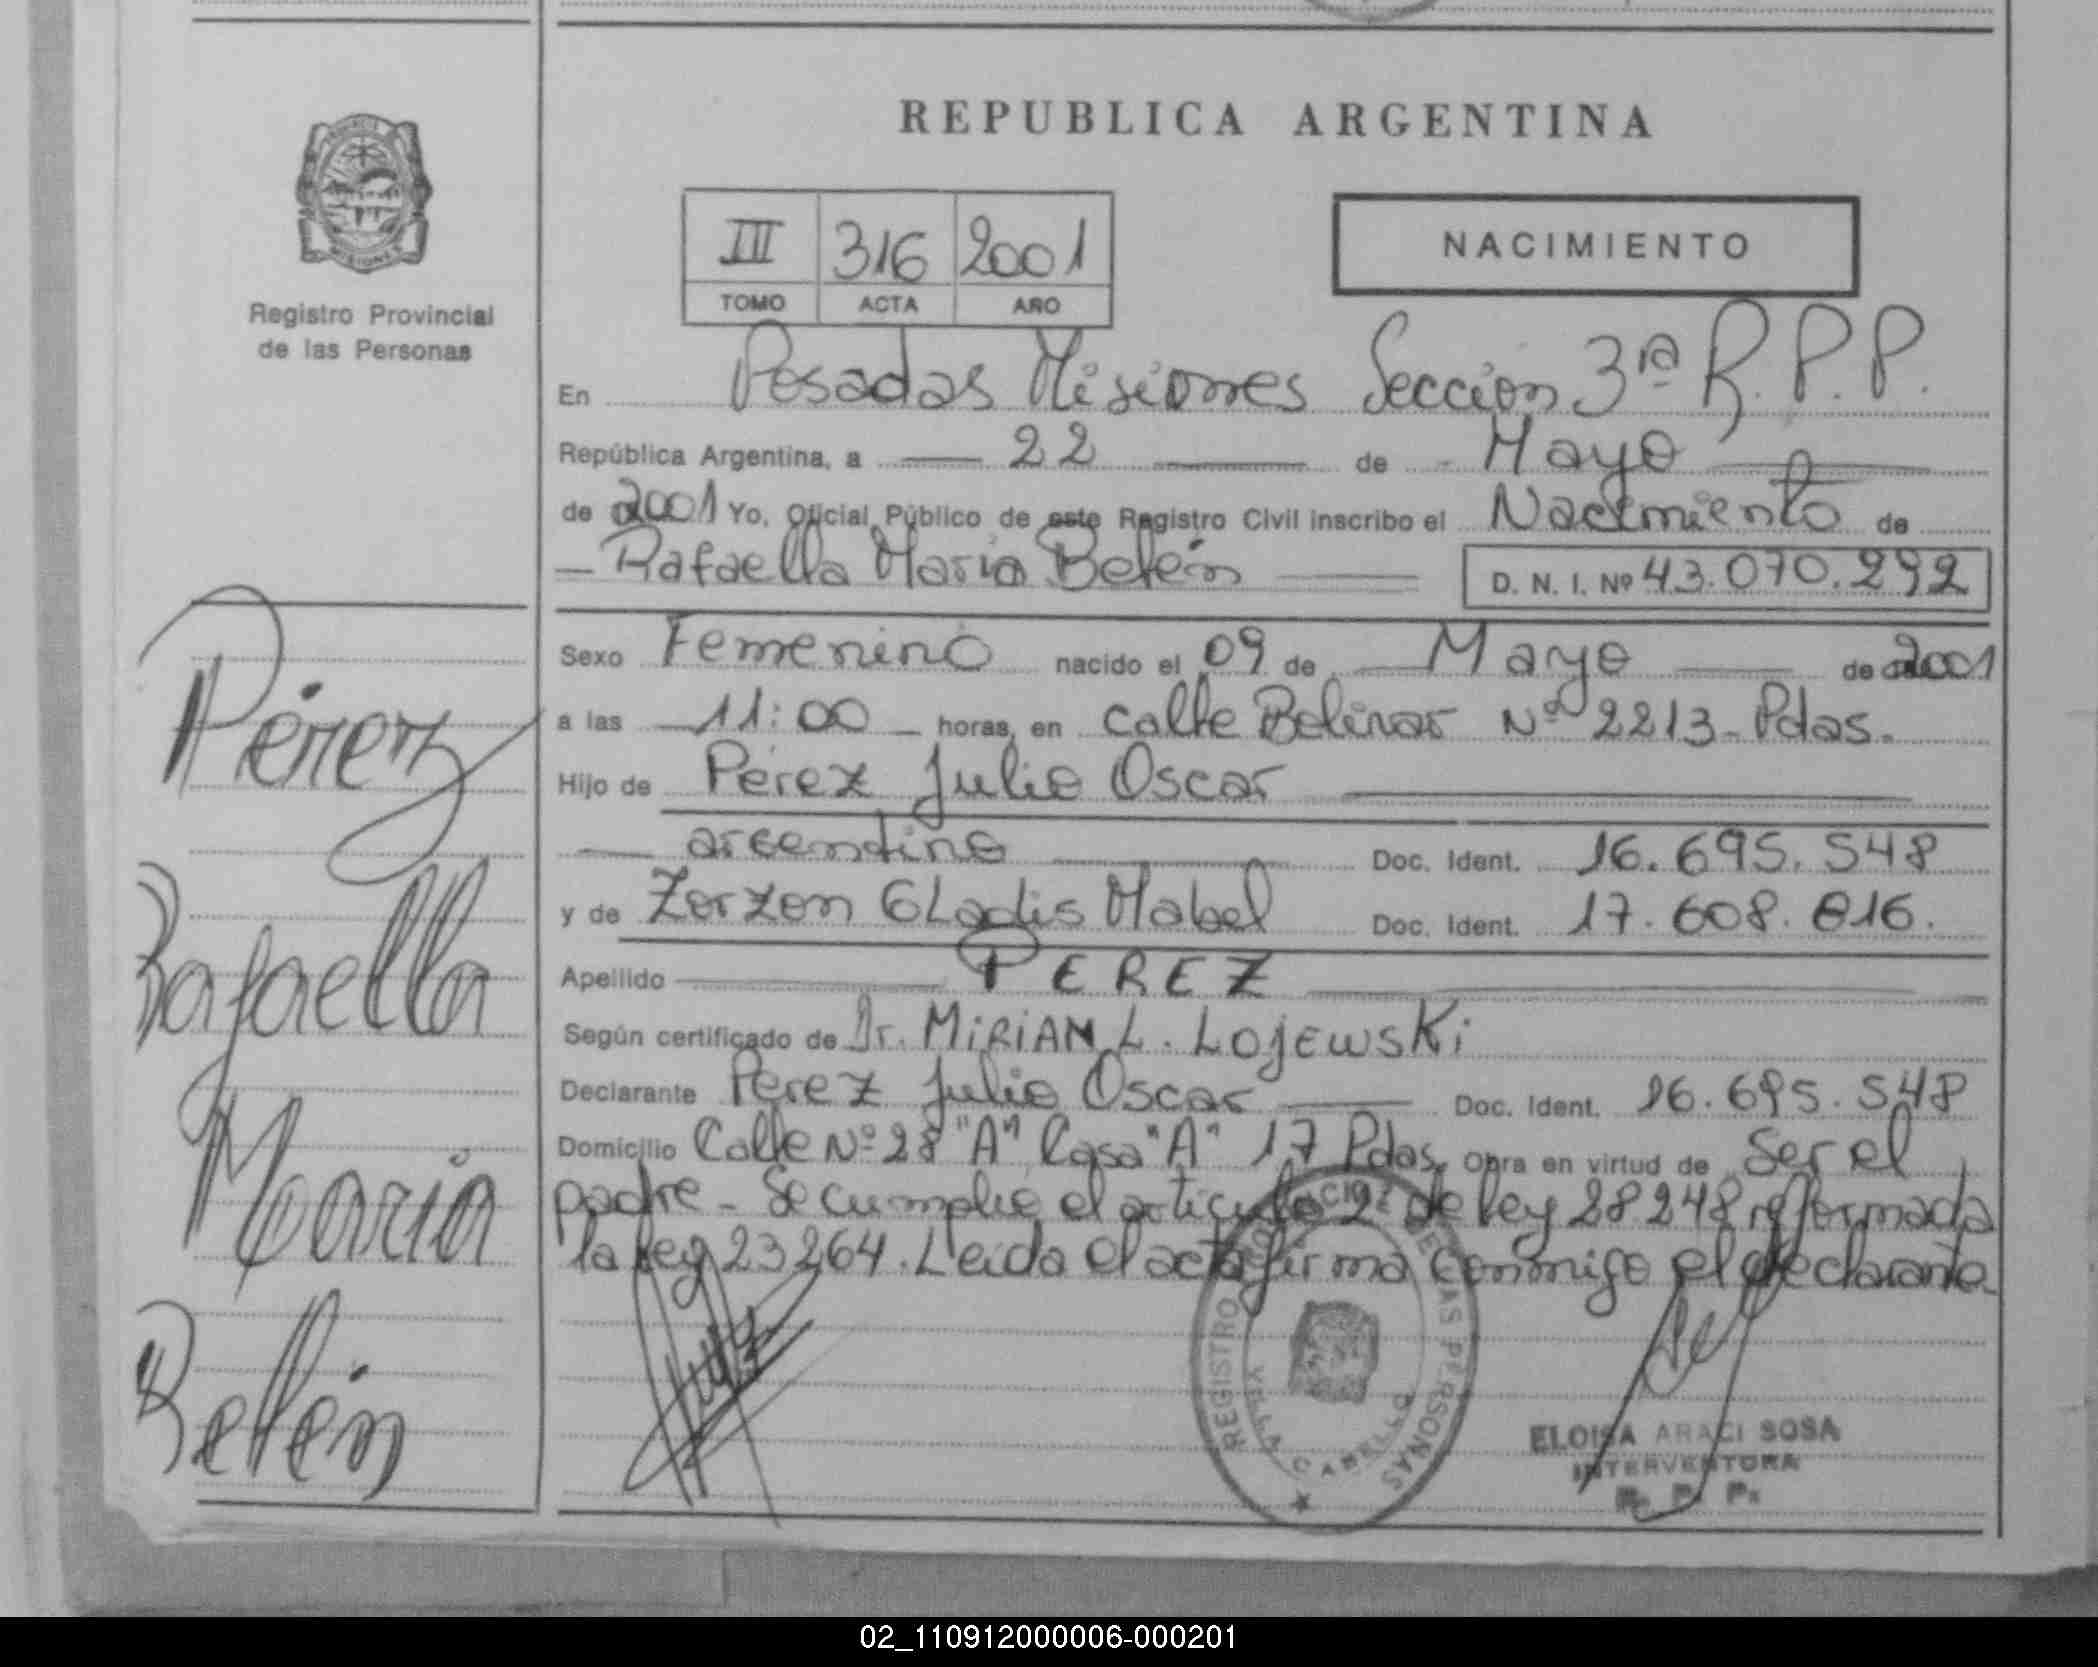 REPUBLICA ARGENTINA
III 316 2001
TOMO ACTA AÑO
NACIMIENTO
Registro Provincial
de las Personas
En Posadas Misiones Sección 3ra R.P.P.
República Argentina, a 22 de Mayo
de 2001 Yo, Oficial Público de este Registro Civil inscribo el Nacimiento de
Rafaella Maria Belén D. N. I. Nº 43.070.292
Sexo Femenino nacido el 09 de Mayo de 2001
a las 11:00 horas, en calle Bolivar Nº 2213 - Pdas.
Hijo de Pérez Julio Oscar
argentino Doc. Ident. 16.695.548
y de Zorzon Gladis Mabel Doc. Ident. 17.608.816.
Apellido PEREZ
Según certificado de Dr. MiRiAN L. LOjEwsKi
Declarante Pérez Julio Oscar Doc. Ident. 16.695.548
Domicilio Calle Nº 28 "A" Casa "A" 17 Pdas. Obra en virtud de Ser el
padre - Se cumplió el articulo 2º de ley 28248 reformada
la ley 23264. Leida el acta firma conmigo el declarante.
Pérez
Rafaella
Maria
Belén
REGISTRO DE LAS PERSONAS
VILLA CABELLO
ELOISA ARACI SOSA
INTERVENTORA
R. P. P.
02_110912000006-000201